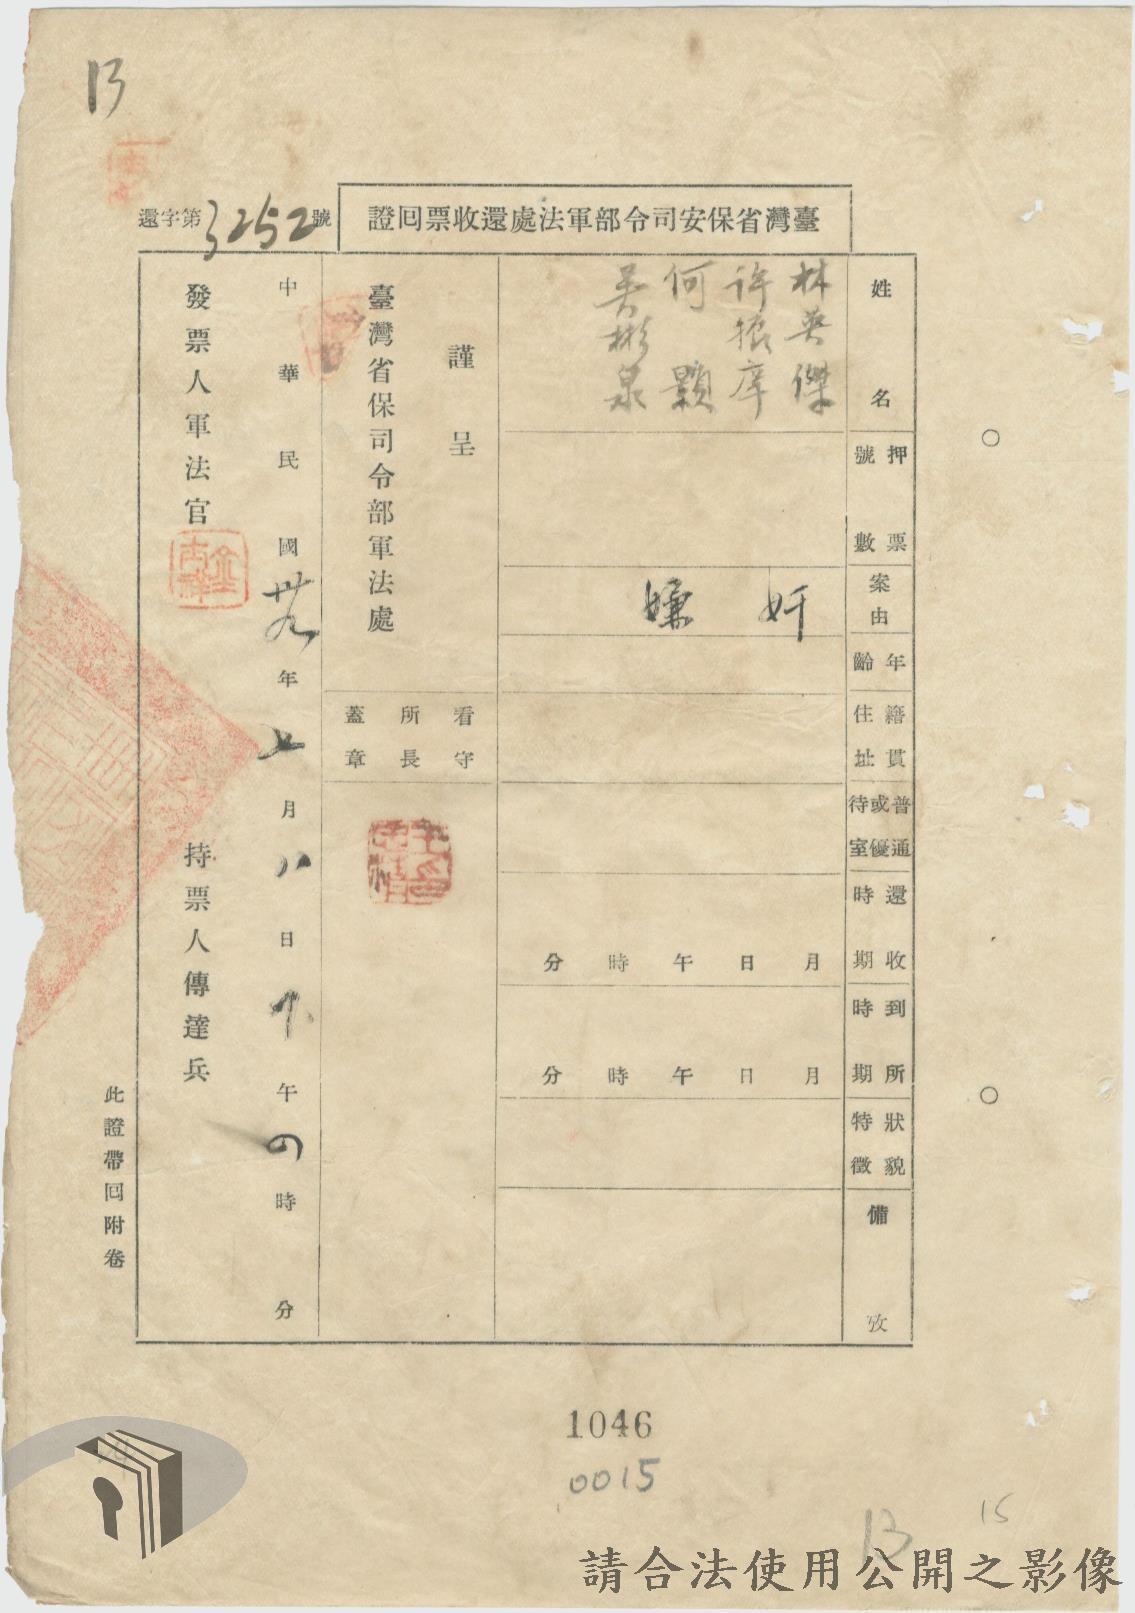 13
臺灣省保安司令部軍法處還收票回證
還字第3252號
姓名
林英傑
許振庠
何顯
吳彬泉
押票號數
案由
奸嫌
年齡
籍貫住址
普通或優待室
還收時期
月日午時分
到所時期
月日午時分
狀貌特徵
備攷
謹呈
臺灣省保司令部軍法處
看守所長蓋章
中華民國卅九年七月八日下午四時分
發票人軍法官
持票人傳達兵
此證帶回附卷
1046
0015
13
15
請合法使用公開之影像